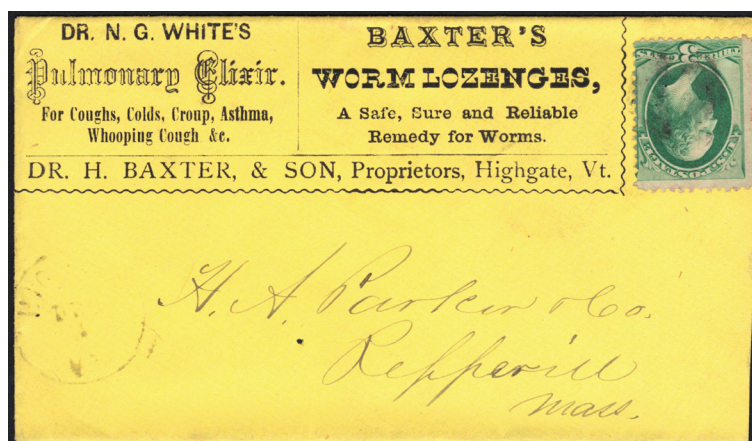 DR. N. G. WHITE'S
Pulmonary Elixir.
For Coughs, Colds, Croup, Asthma,
Whooping Cough &c.
BAXTER'S
WORM LOZENGES,
A Safe, Sure and Reliable
Remedy for Worms.
DR. H. BAXTER, & SON, Proprietors, Highgate, Vt.
H. A. Parker & Co.
Pepperill
Mass.